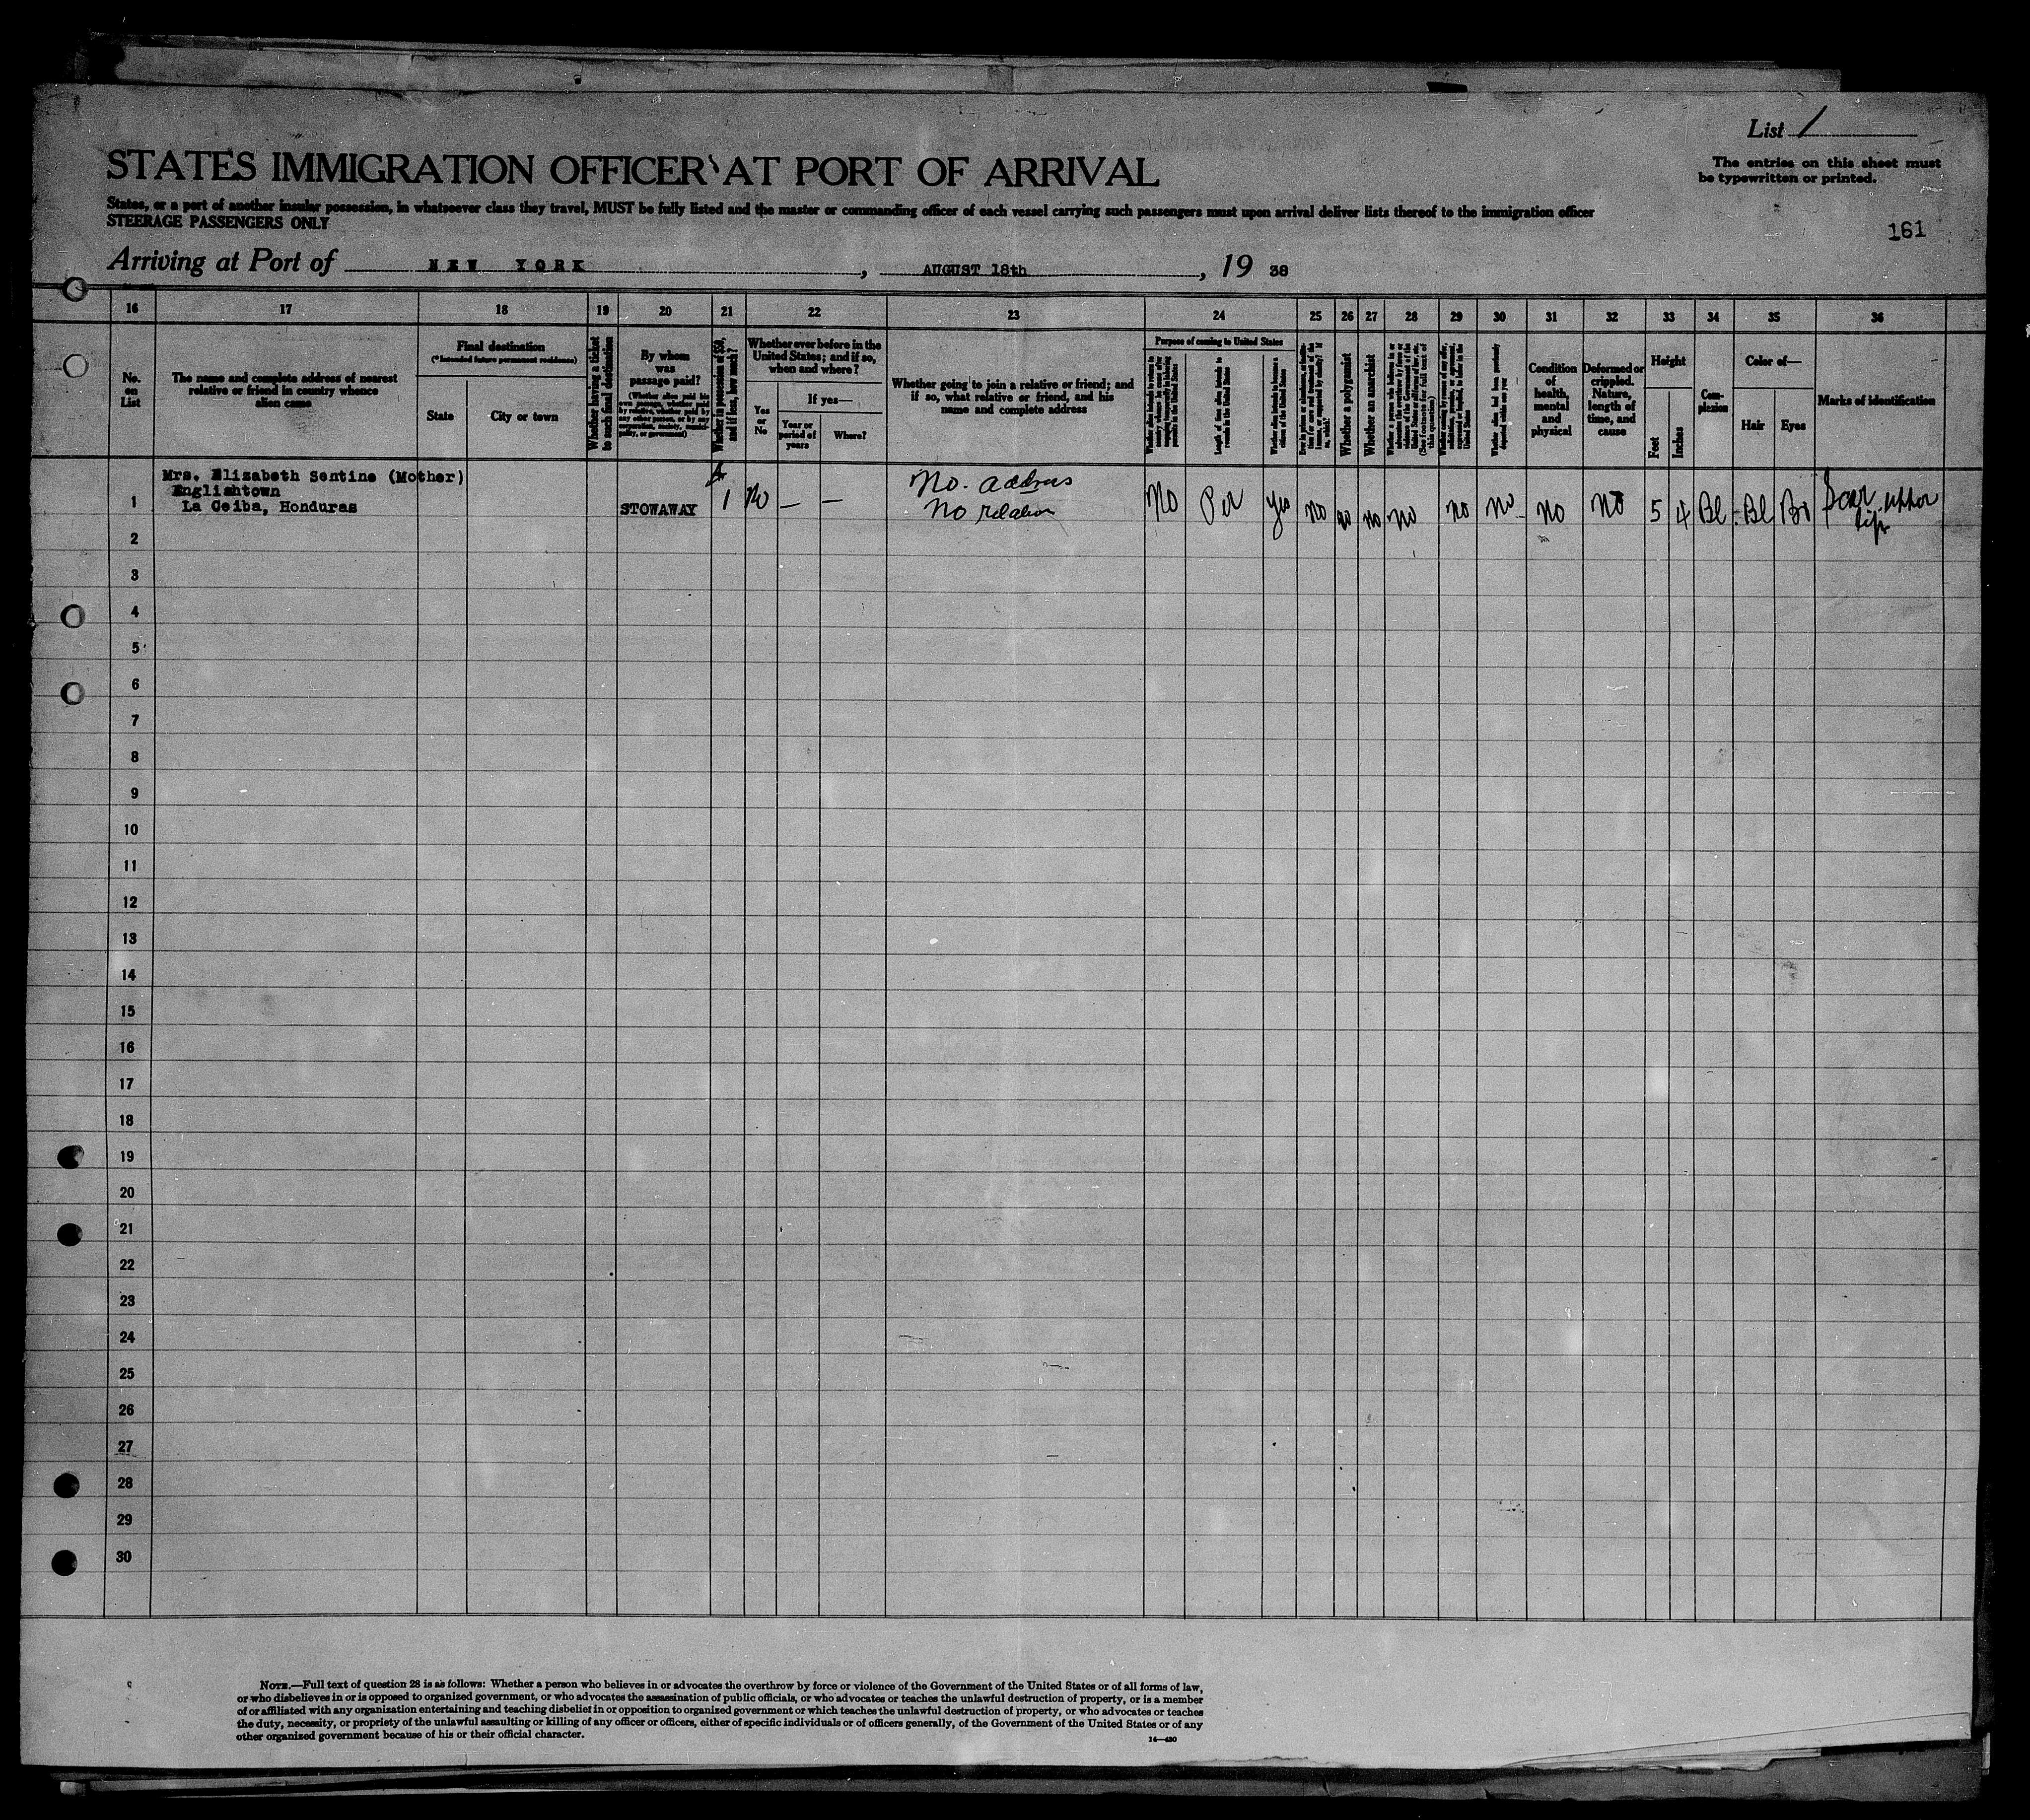 List 1
The entries on this sheet must
be typewritten or printed.
161
STATES IMMIGRATION OFFICER AT PORT OF ARRIVAL
States, or a port of another insular possession, in whatsoever class they travel, MUST be fully listed and the master or commanding officer of each vessel carrying such passengers must upon arrival deliver lists thereof to the immigration officer
STEERAGE PASSENGERS ONLY
Arriving at Port of NEW YORK, AUGUST 18th, 19 38
16 17 18 19 20 21 22 23 24 25 26 27 28 29 30 31 32 33 34 35 36
No.
on
List
The name and complete address of nearest
relative or friend in country whence
alien came
Final destination
(*Intended future permanent residence)
State
City or town
Whether having a ticket
to such final destination
By whom
was
passage paid?
(Whether alien paid his
own passage, whether paid
by relative, whether paid by
any other person, or by any
corporation, society, munici-
pality, or government)
Whether in possession of $50,
and if less, how much?
Whether ever before in the
United States; and if so,
when and where?
Yes
or
No
If yes—
Year or
period of
years
Where?
Whether going to join a relative or friend; and
if so, what relative or friend, and his
name and complete address
Purpose of coming to United States
Length of time alien intends to
remain in the United States
Whether alien intends to become a
citizen of the United States
Whether a polygamist
Whether an anarchist
(See footnote for full text of
this question)
Whether alien had been previously
deported within one year
Condition
of
health,
mental
and
physical
Deformed or
crippled.
Nature,
length of
time, and
cause
Height
Feet
Inches
Com-
plexion
Color of—
Hair
Eyes
Marks of identification
Mrs. Elizabeth Sentine (Mother)
Englishtown
La Ceiba, Honduras
1 STOWAWAY $ 1 No — — No. address
No relation
No Per Yes no no no no no no no no 5 4 Bl Bl Br Scar upper
lip
2
3
4
5
6
7
8
9
10
11
12
13
14
15
16
17
18
19
20
21
22
23
24
25
26
27
28
29
30
NOTE.—Full text of question 28 is as follows: Whether a person who believes in or advocates the overthrow by force or violence of the Government of the United States or of all forms of law,
or who disbelieves in or is opposed to organized government, or who advocates the assassination of public officials, or who advocates or teaches the unlawful destruction of property, or is a member
of or affiliated with any organization entertaining and teaching disbelief in or opposition to organized government or which teaches the unlawful destruction of property, or who advocates or teaches
the duty, necessity, or propriety of the unlawful assaulting or killing of any officer or officers, either of specific individuals or of officers generally, of the Government of the United States or of any
other organized government because of his or their official character.
14—430